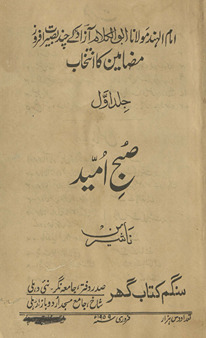 امام الہند مولانا ابوالکلام آزاد کے چند بصیرت افروز
مضامین کا انتخاب
جلد اوّل
صبحِ امّید
ناشرین
سنگم کتاب گھر
صدر دفتر: جامعہ نگر۔ نئی دہلی
شاخ: جامع مسجد اردو بازار دہلی
فروری